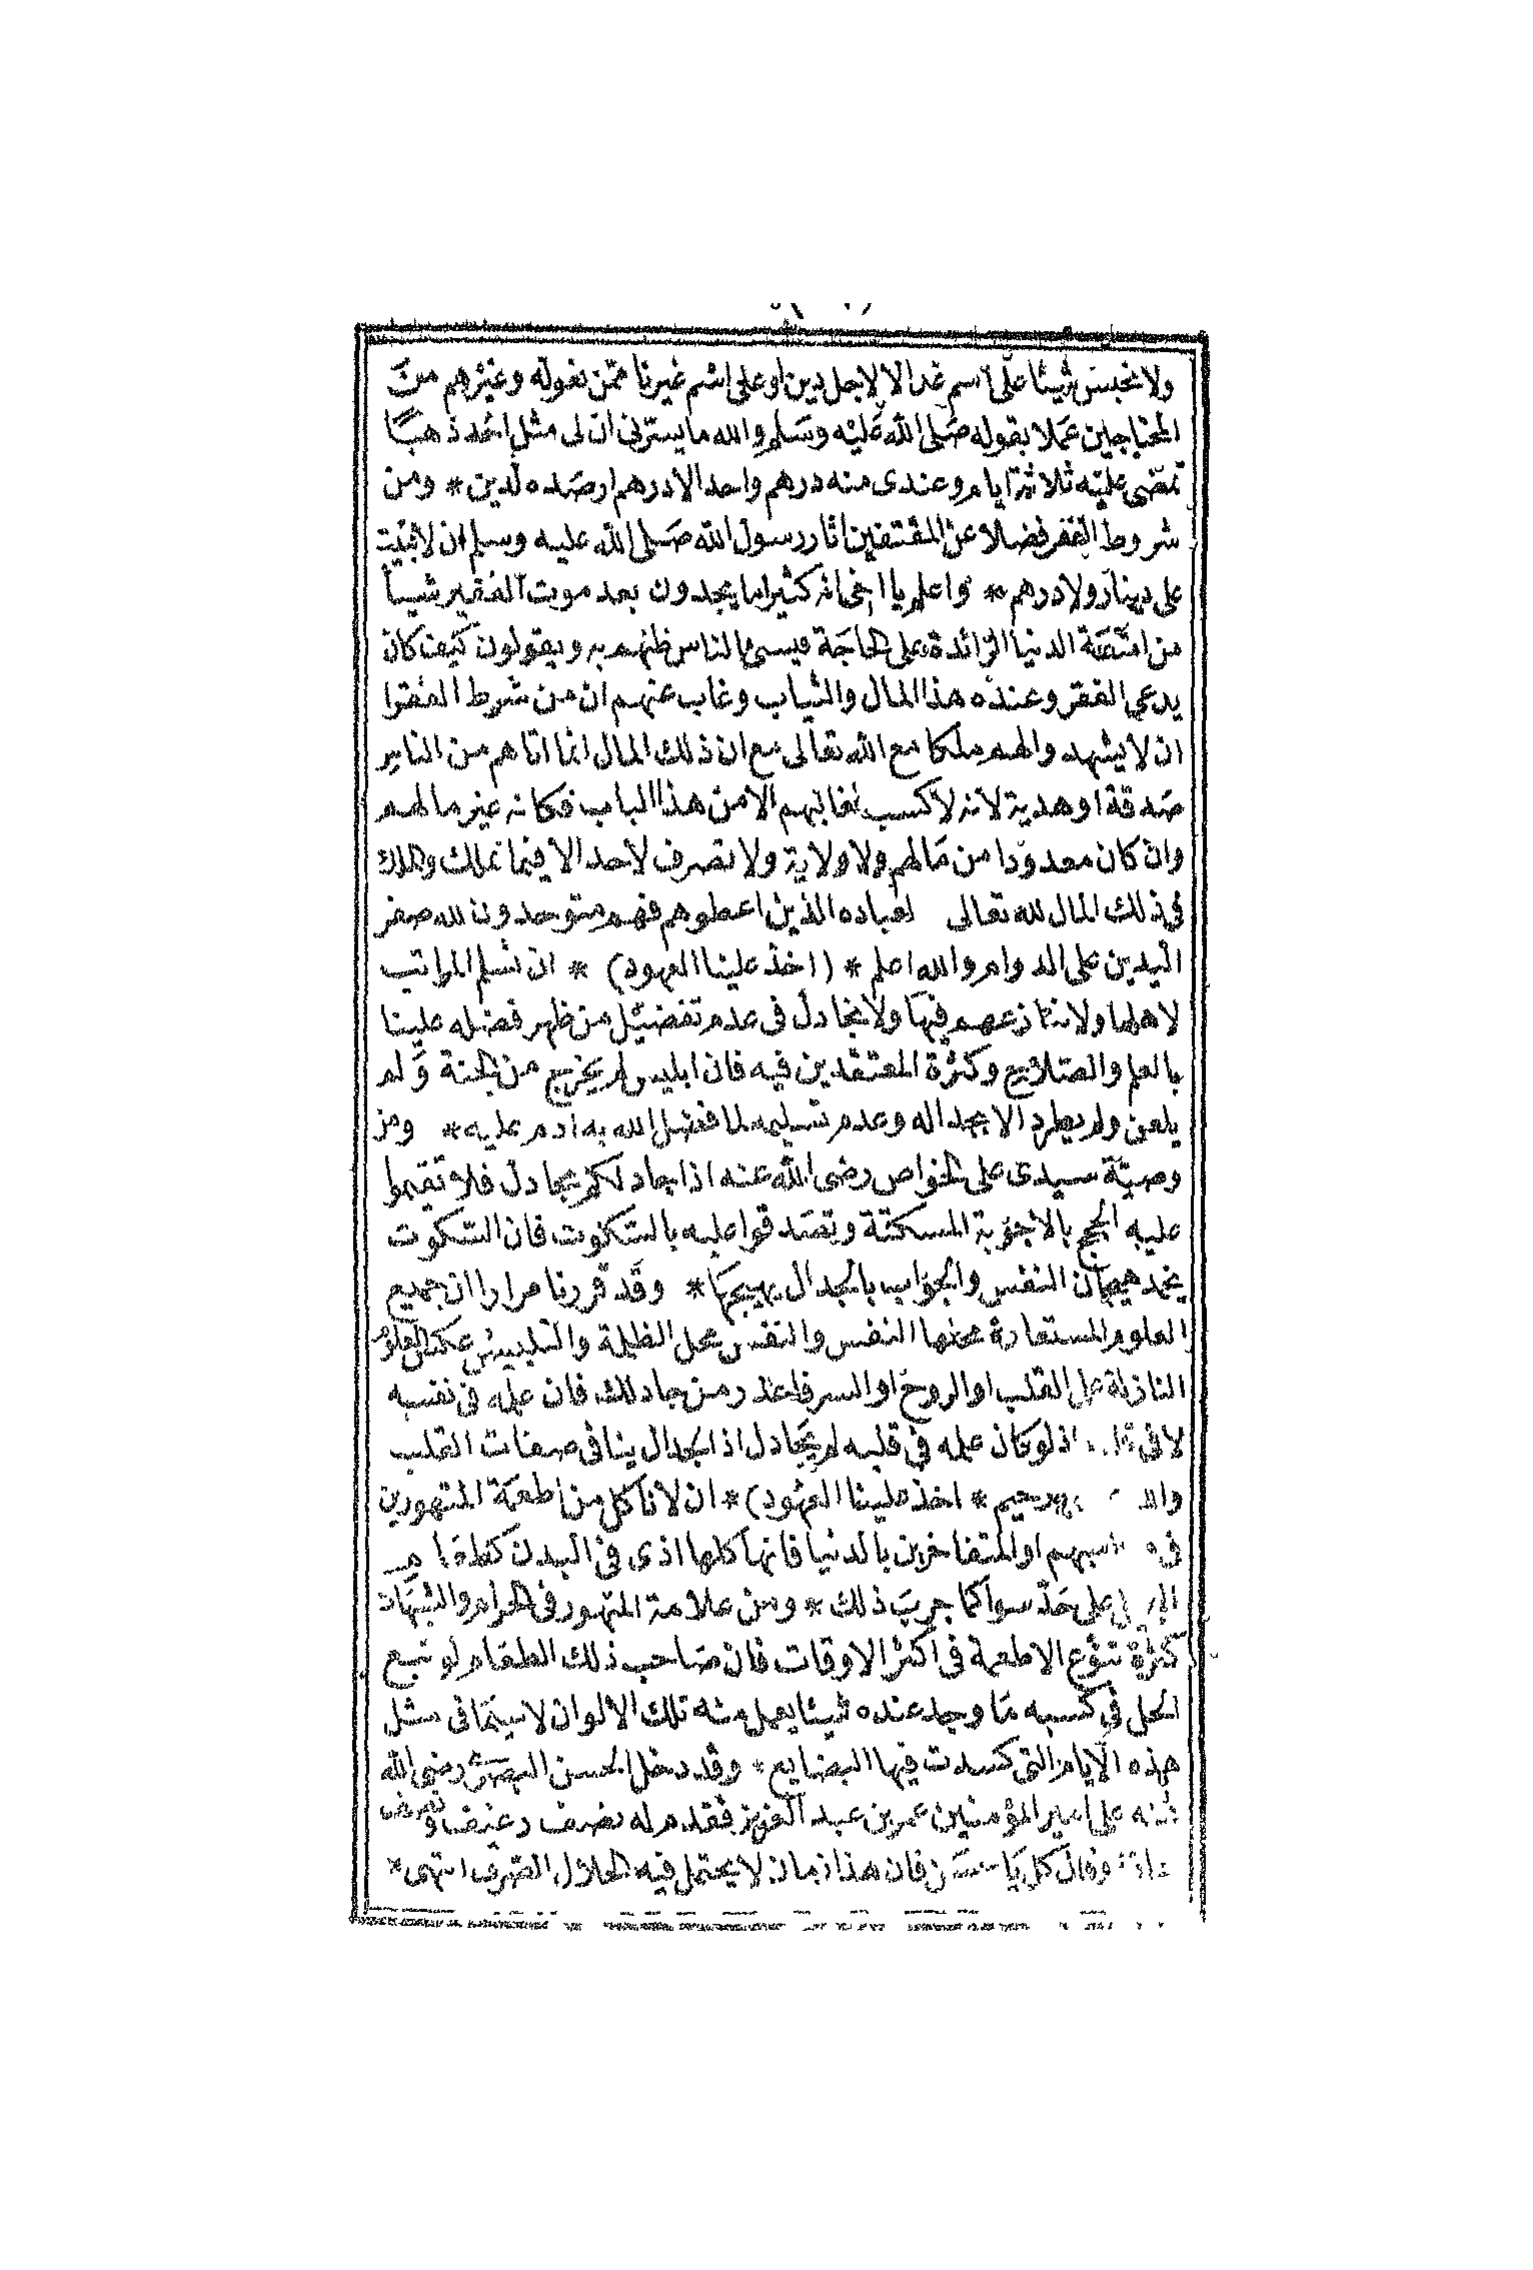 ولا نحبس شيئا على اسم غد الا لاجل دين او على اسم غيرنا ممن نعوله وغيرهم من
المحتاجين عملا بقوله صلى الله عليه وسلم والله ما يسترني ان لى مثل احد ذهبا
تمضى عليه ثلاثة ايام وعندى منه درهم واحد الا درهم ارصده لدين * ومن
شروط الفقر فضلا عن المقتفين اثار رسول الله صلى الله عليه وسلم ان لا نبيت
على دينار ولا درهم * واعلم يا اخى انه كثيرا ما يجدون بعد موت الفقير شيأ
من امتعة الدنيا الزائدة على الحاجة فيسئ الناس ظنهم به ويقولون كيف كان
يدعى الفقر وعنده هذا المال والثياب وغاب عنهم ان من شرط الفقرا
ان لا يشهدوا لهم ملكا مع الله تعالى مع ان ذلك المال انما اتاهم من الناس
صدقة او هدية لانه لا كسب لغالبهم الا من هذا الباب فكانه غير مالهم
وان كان معدودا من مالهم ولا ولاية ولا تصرف لاحد الا فيما تملك والملك
فى ذلك المال لله تعالى لعباده الذين اعطوهم فهم متوحدون لله صفر
اليدين على الدوام والله اعلم * (اخذ علينا العهود) * ان نسلم المراتب
لاهلها ولا ننازعهم فيها ولا نجادل فى عدم تفضيل من ظهر فضله علينا
بالعلم والصلاح وكثرة المعتقدين فيه فان ابليس لم يخرج من الجنة ولم
يلعن ولم يطرد الا بجداله وعدم تسليمه لما فضل الله به ادم عليه * ومن
وصية سيدى على الخواص رضى الله عنه اذا جادلكم مجادل فلا تقيموا
عليه الحجج بالاجوبة المسكتة وتصدقوا عليه بالسكوت فان السكوت
يخمد هيجان النفس والجواب بالجدال يهيجها * وقد قررنا مرارا ان جميع
العلوم المستعارة محلها النفس والنفس محل الظلمة والتلبيس عكس العلوم
النازلة على القلب او الروح او السر فاعذر من جادلك فان علمه فى نفسه
لا فى اذ لو كان علمه فى قلبه لم يجادل اذ الجدال ينافى صفات القلب
رحيم * اخذ علينا العهود) * ان لا ناكل من اطعمة المتهورين
فى او المتفاخرين بالدنيا فانها كلها اذى فى البدن
على حد سوا كما جرب ذلك * ومن علامة المتهور فى الحرام والشبهات
كثرة تنوع الاطعمة فى اكثر الاوقات فان صاحب ذلك الطعام لو تتبع
الحل فى كسبه ما وجد عنده شيئا يعمل منه تلك الالوان لا سيما فى مثل
هذه الايام التى كسدت فيها البضايع * وقد دخل الحسن البصرى رضى الله
عنه على امير المؤمنين عمر بن عبد العزيز فقدم له نصف رغيف ونصف
وقال كل يا حسن فان هذا زمان لا يحتمل فيه الحلال الصرف انتهى *